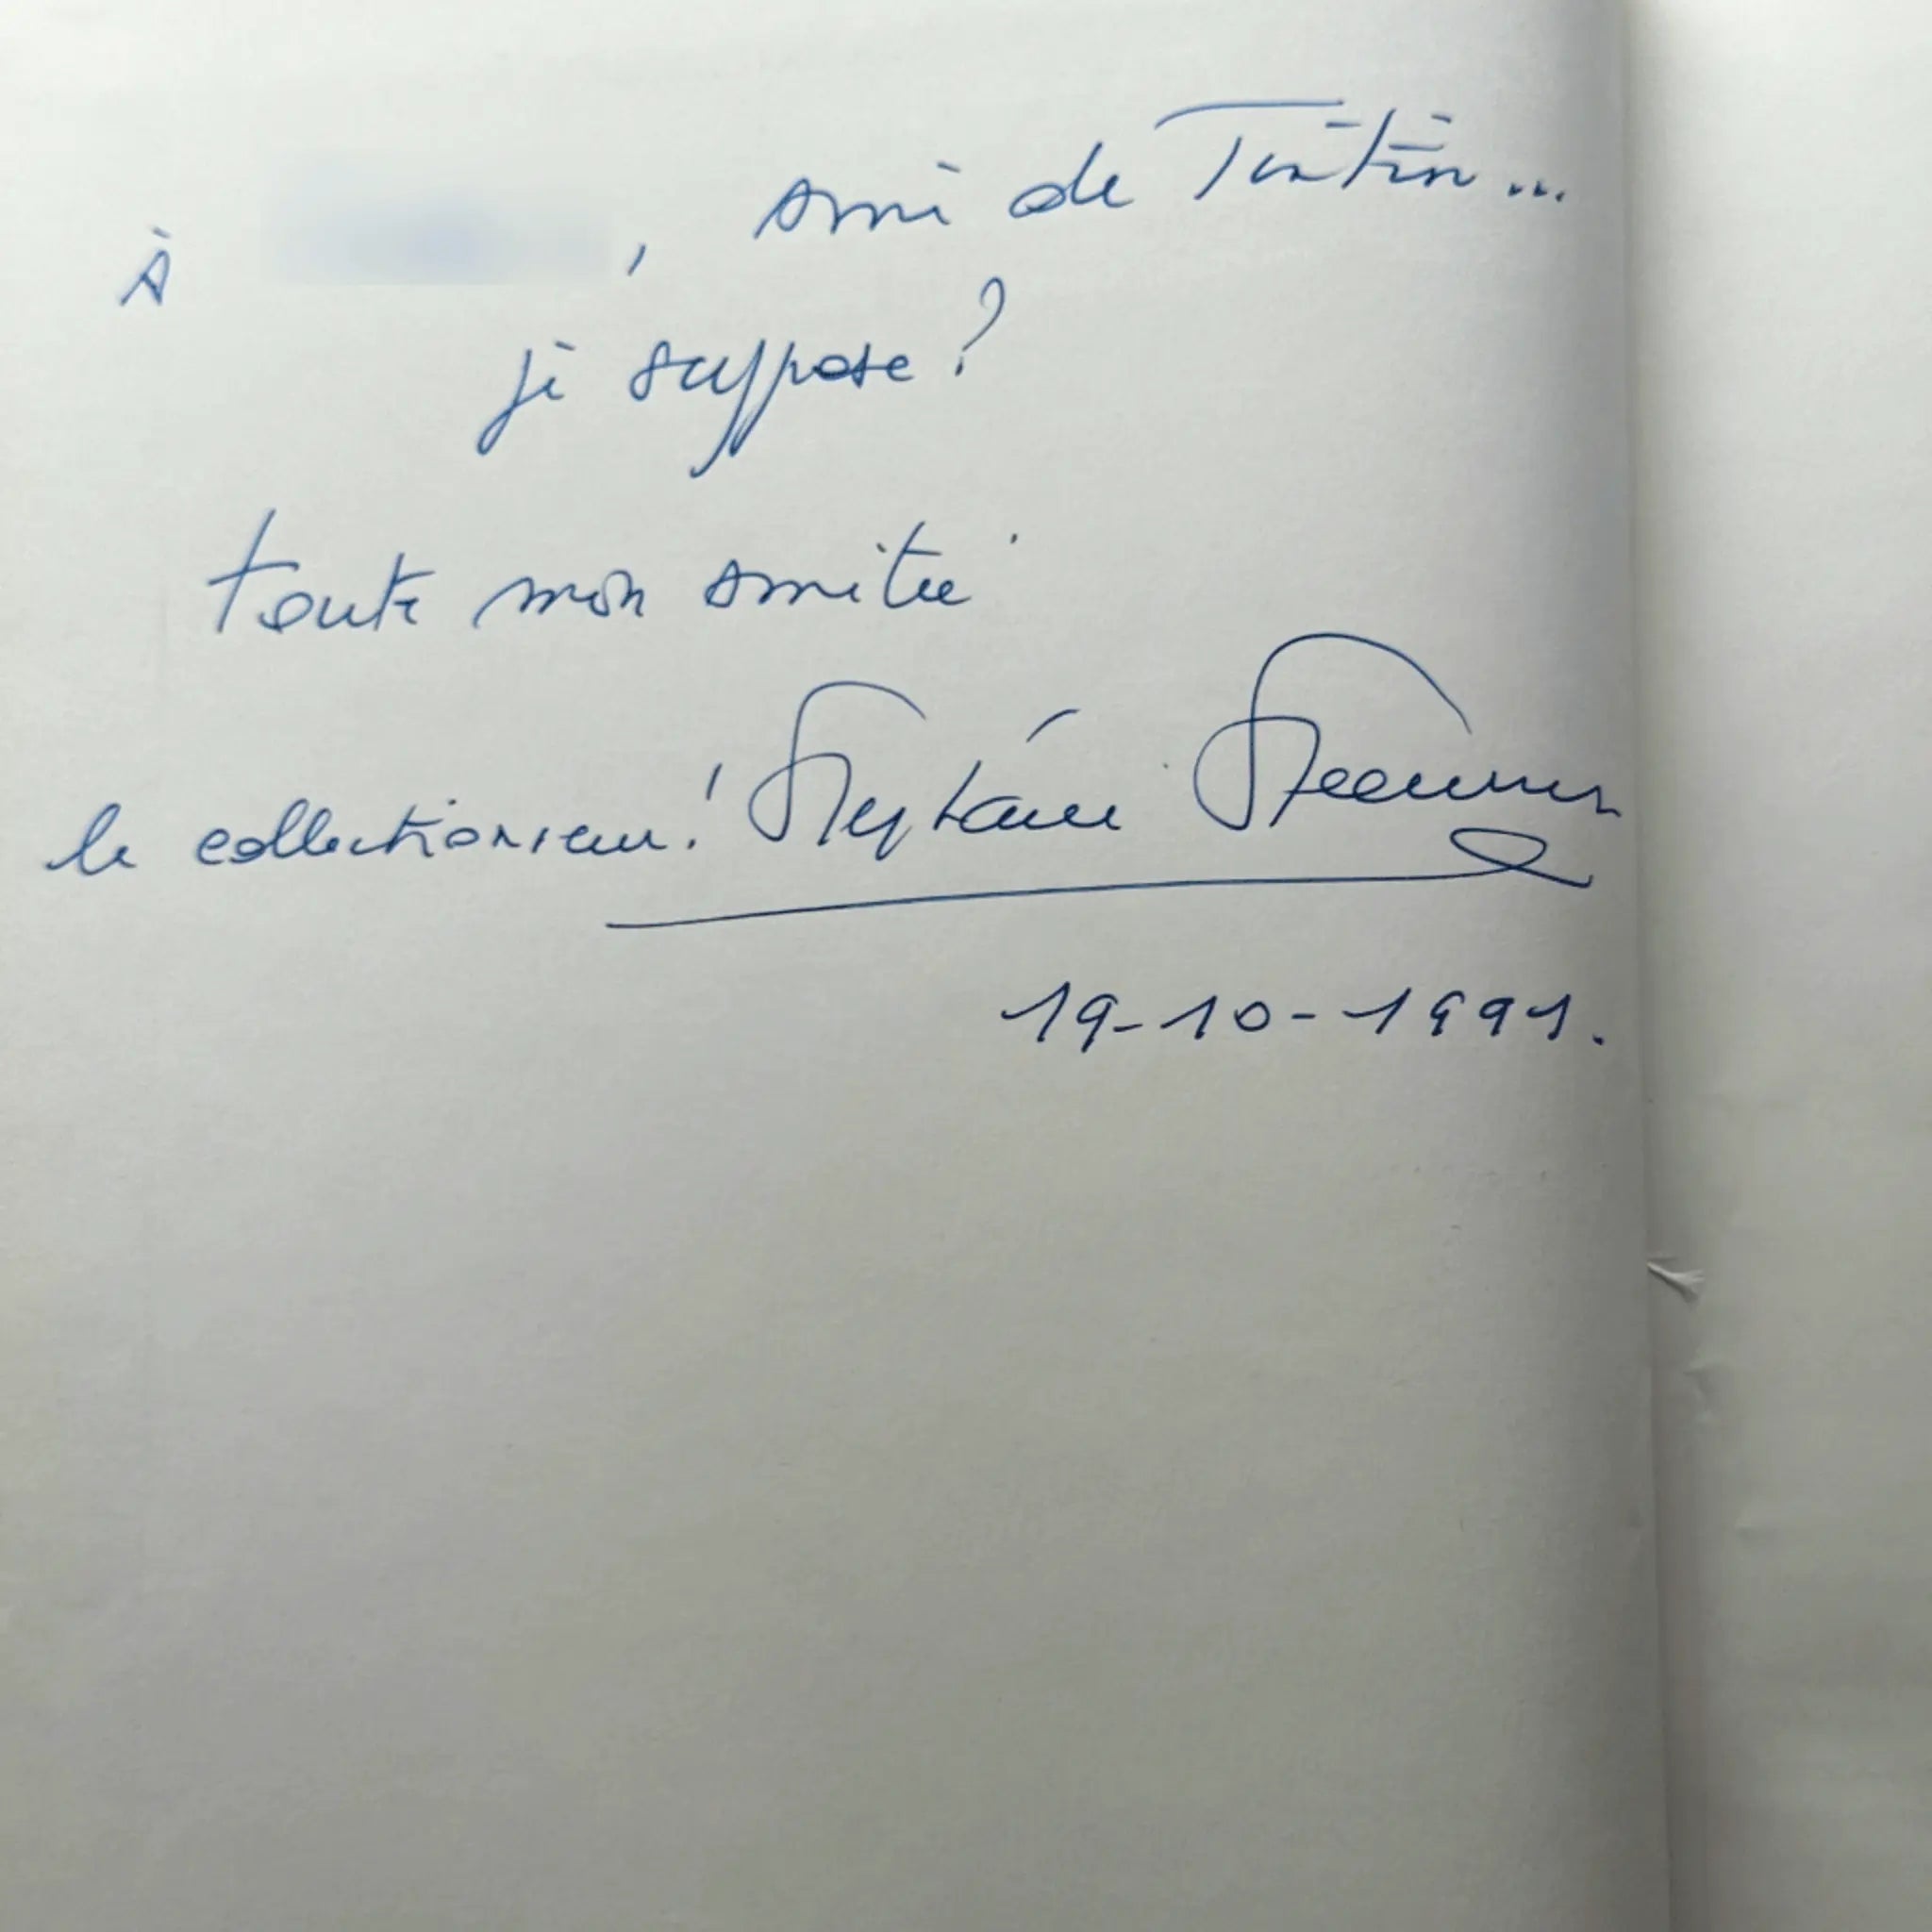 à , ami de Tintin...
je suppose ?
toute mon amitié
le collectionneur ! Stéphane Steeman
19-10-1991.